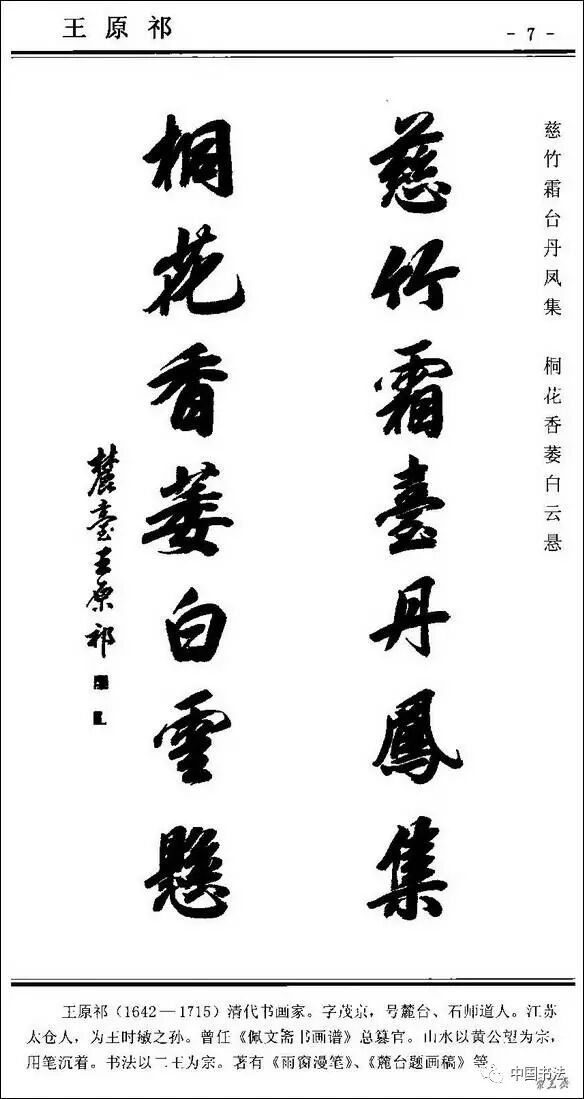 王原祁
- 7 -
慈竹霜台丹凤集 桐花香萎白云悬
慈竹霜臺丹鳳集
桐花香萎白雲懸
麓臺王原祁
王原祁（1642—1715）清代书画家。字茂京，号麓台、石师道人。江苏
太仓人，为王时敏之孙。曾任《佩文斋书画谱》总纂官。山水以黄公望为宗，
用笔沉着。书法以二王为宗。著有《雨窗漫笔》、《麓台题画稿》等。
中国书法